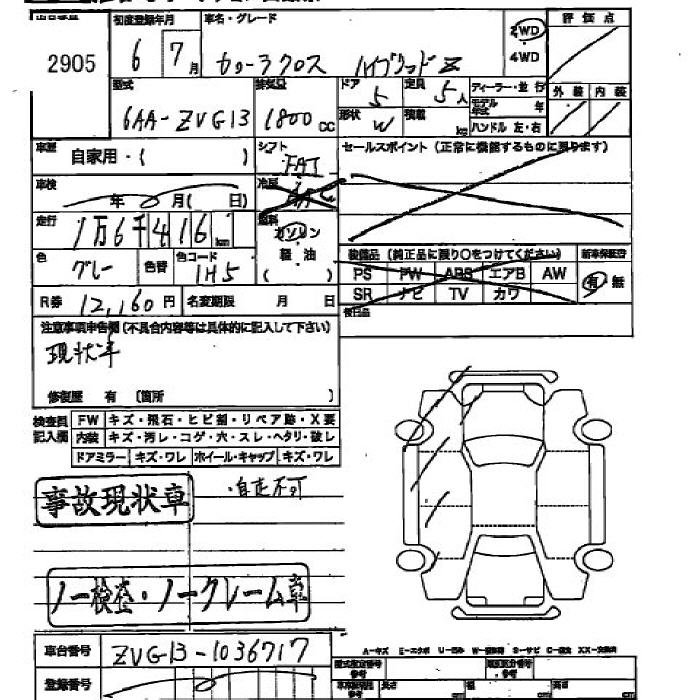 出品番号 初度登録年月 車名・グレード 2WD 評価点
2905 6 7月 カローラクロス ハイブリッド Z 4WD
型式 排気量 ドア 定員 ディーラー・並行 外装 内装
6AA-ZVG13 1800cc 5 5人 モデル年式 年
形状 W 積載 kg ハンドル 左・右
車歴 自家用・( ) シフト FAT セールスポイント(正常に機能するものに限ります)
車検 年 月( 日) 冷房
走行 1万6千416km 燃料 ガソリン
色 グレー 色替 色コード 1H5 軽油 ( )
装備品(純正品に限り○をつけてください) 新車保証書
PS PW ABS エアB AW 有 無
SR ナビ TV カワ
R券 12,160円 名変期限 月 日 後日品
注意事項申告欄(不具合内容等は具体的に記入して下さい)
現状車
修復歴 有 (箇所 )
検査員記入欄 FW キズ・飛石・ヒビ割・リペア跡・X要
内装 キズ・汚レ・コゲ・穴・スレ・ヘタリ・破レ
ドアミラー キズ・ワレ ホイール・キャップ キズ・ワレ
事故現状車 ・自走不可
ノー検査・ノークレーム車
A-キズ E-エクボ U-凹み W-補修跡 S-サビ C-腐食 XX-交換済
車台番号 ZVG13-1036717
型式指定番号 参考 類別区分番号 参考
登録番号 長さ cm 幅 cm 高さ cm